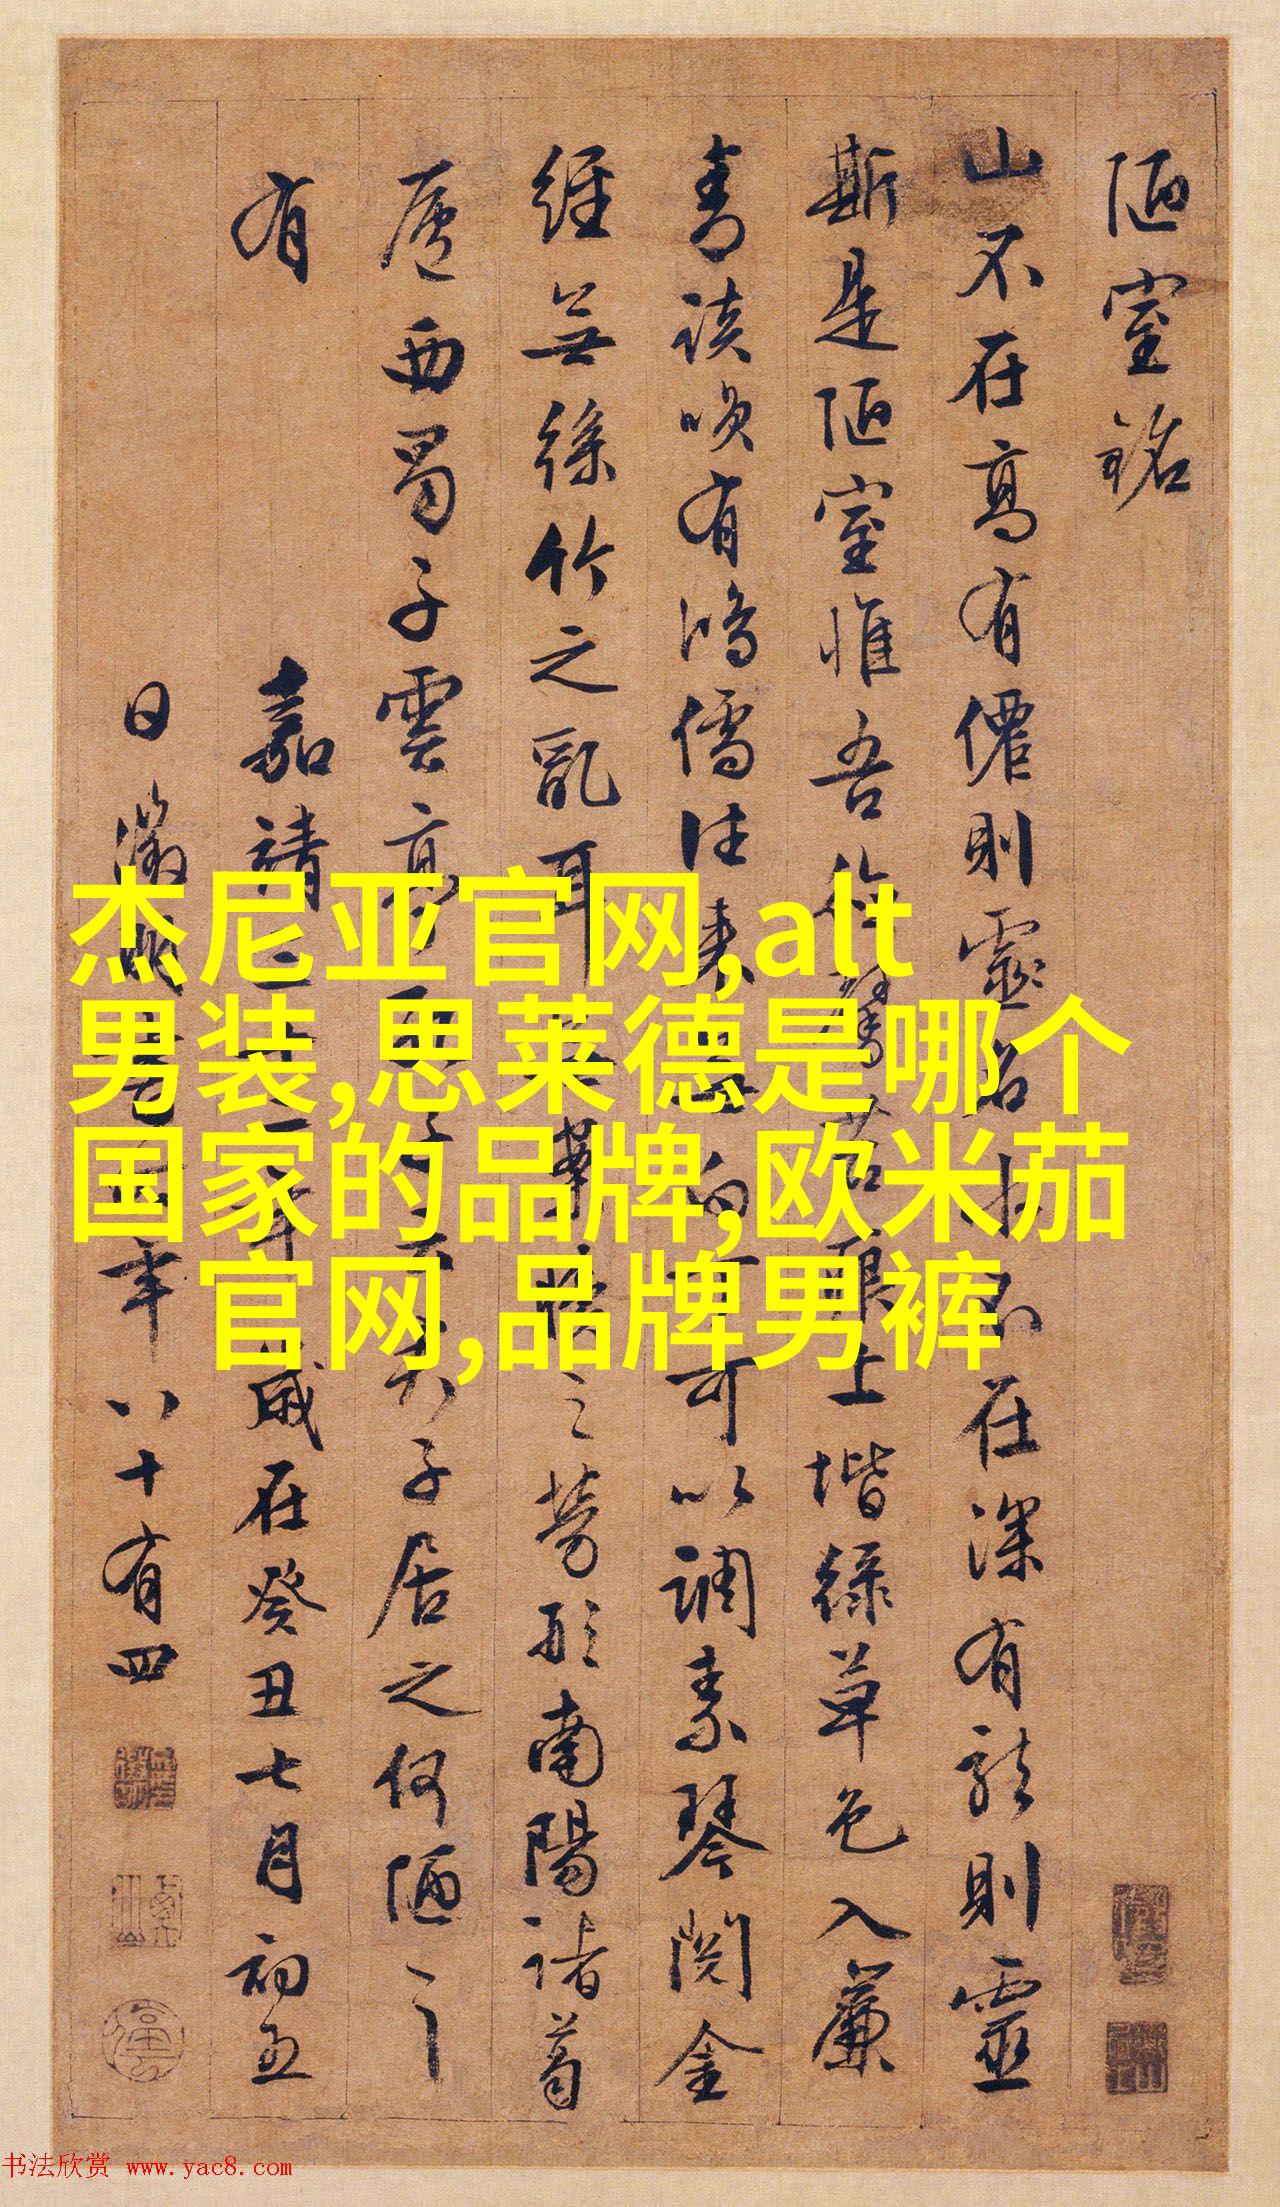 陋室銘
山不在高有僊則靈名水不在深有龍則靈
斯是陋室惟吾德馨苔痕上堦綠草色入簾
青談咲有鴻儒往来無白丁可以調素琴閱金
經無絲竹之亂耳無案牘之勞形南陽諸葛
廬西蜀子雲亭孔子云君子居之何陋之
有
嘉靖三十二年歲在癸丑七月初五
日徵明書時年八十有四
杰尼亚官网,alt
男装,思莱德是哪个
国家的品牌,欧米茄
官网,品牌男裤
书法欣赏 www.yac8.com